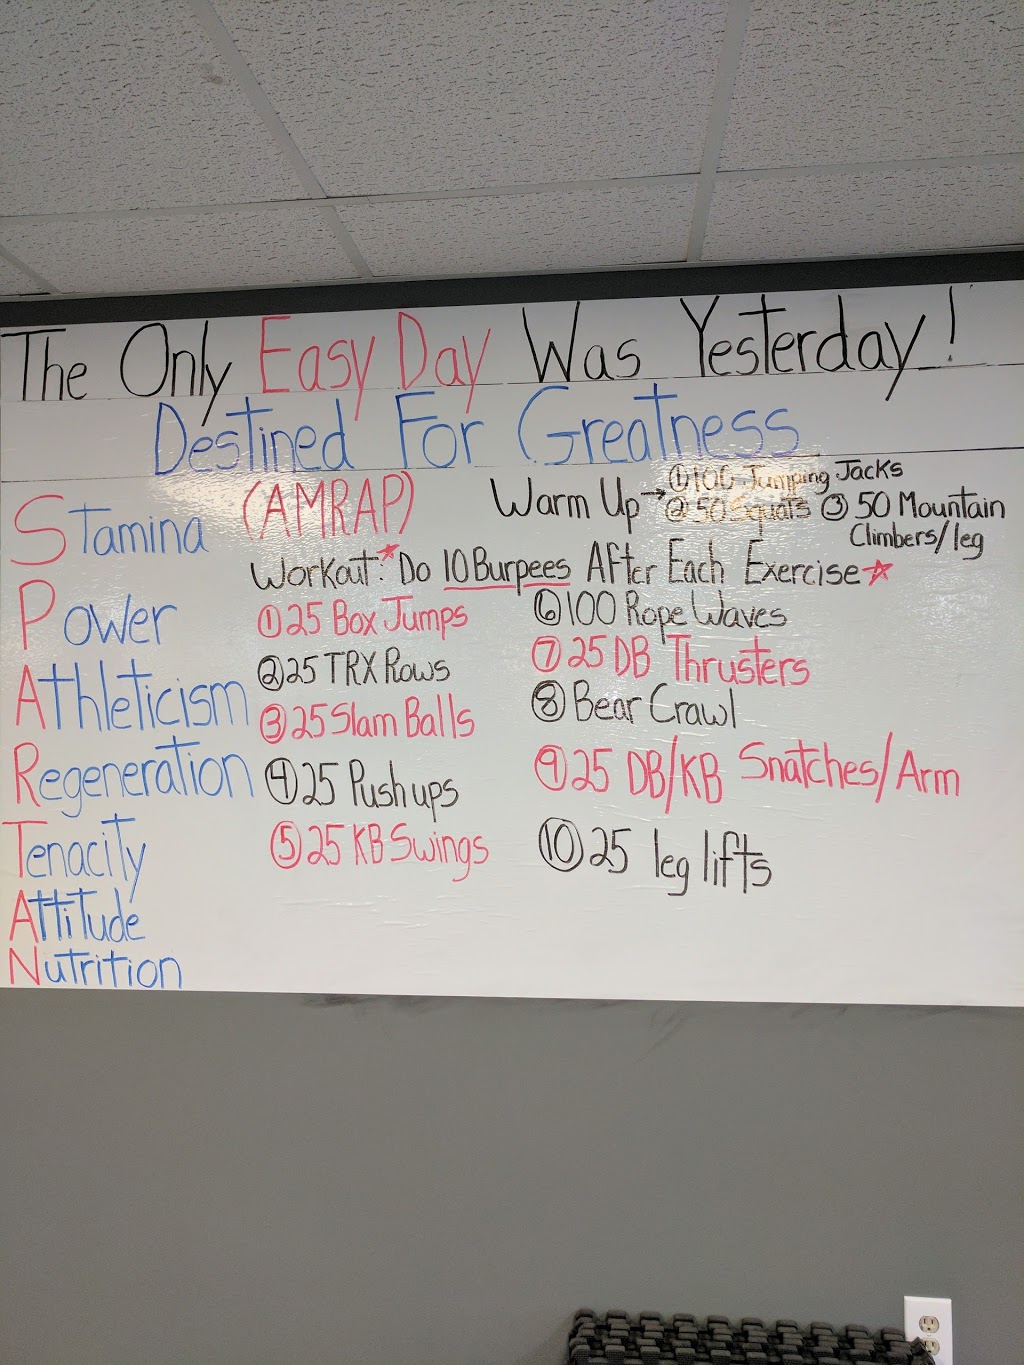 The Only Easy Day Was Yesterday!
Destined For Greatness
Stamina
Power
Athleticism
Regeneration
Tenacity
Attitude
Nutrition
(AMRAP)
Warm Up → ① 100 Jumping Jacks
② 50 Squats ③ 50 Mountain
Climbers/leg
Workout: *Do 10 Burpees After Each Exercise*
① 25 Box Jumps
② 25 TRX Rows
③ 25 Slam Balls
④ 25 Pushups
⑤ 25 KB Swings
⑥ 100 Rope Waves
⑦ 25 DB Thrusters
⑧ Bear Crawl
⑨ 25 DB/KB Snatches/Arm
⑩ 25 leg lifts